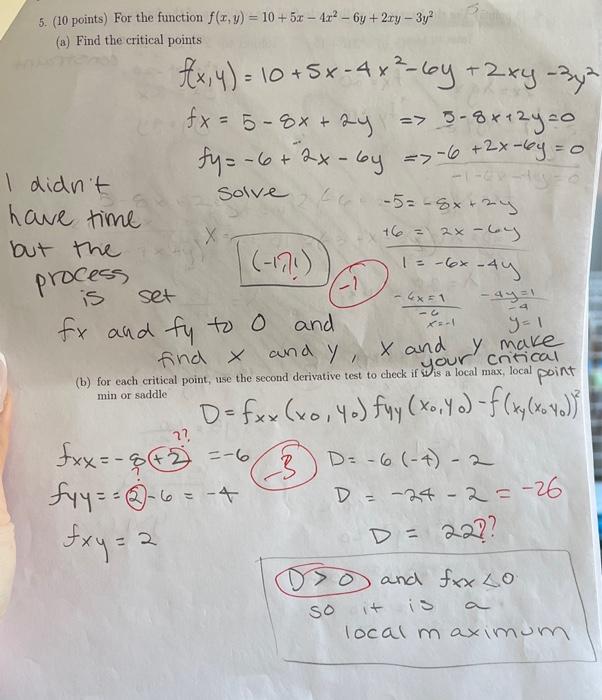 5. (10 points) For the function f(x, y) = 10 + 5x − 4x² − 6y + 2xy − 3y²
(a) Find the critical points
f(x,y) = 10 + 5x - 4x² - 6y + 2xy - 3y²
fx = 5 - 8x + 2y => 5 - 8x + 2y = 0
fy = -6 + 2x - 6y => -6 + 2x - 6y = 0
I didn't
have time
but the
process
is set
fx and fy to 0 and
find x and y, x and y make
your critical
point
solve
-5 = -8x + 2y
+6 = 2x - 6y
1 = -6x - 4y
-6x = 1
-6
x = -1
-4y = 1
-4
y = 1
X =
(-1,1) ?
-1
(b) for each critical point, use the second derivative test to check if it is a local max, local
min or saddle
D = fxx (x0, y0) fyy (x0, y0) - f(xy(x0 y0))²
??
fxx = -8 + 2 = -6
?
fyy = = 2 - 6 = -4
fxy = 2
-3
D = -6 (-4) - 2
D = -24 - 2 = -26
D = 22 ??
D > 0 and fxx < 0
so it is a
local maximum